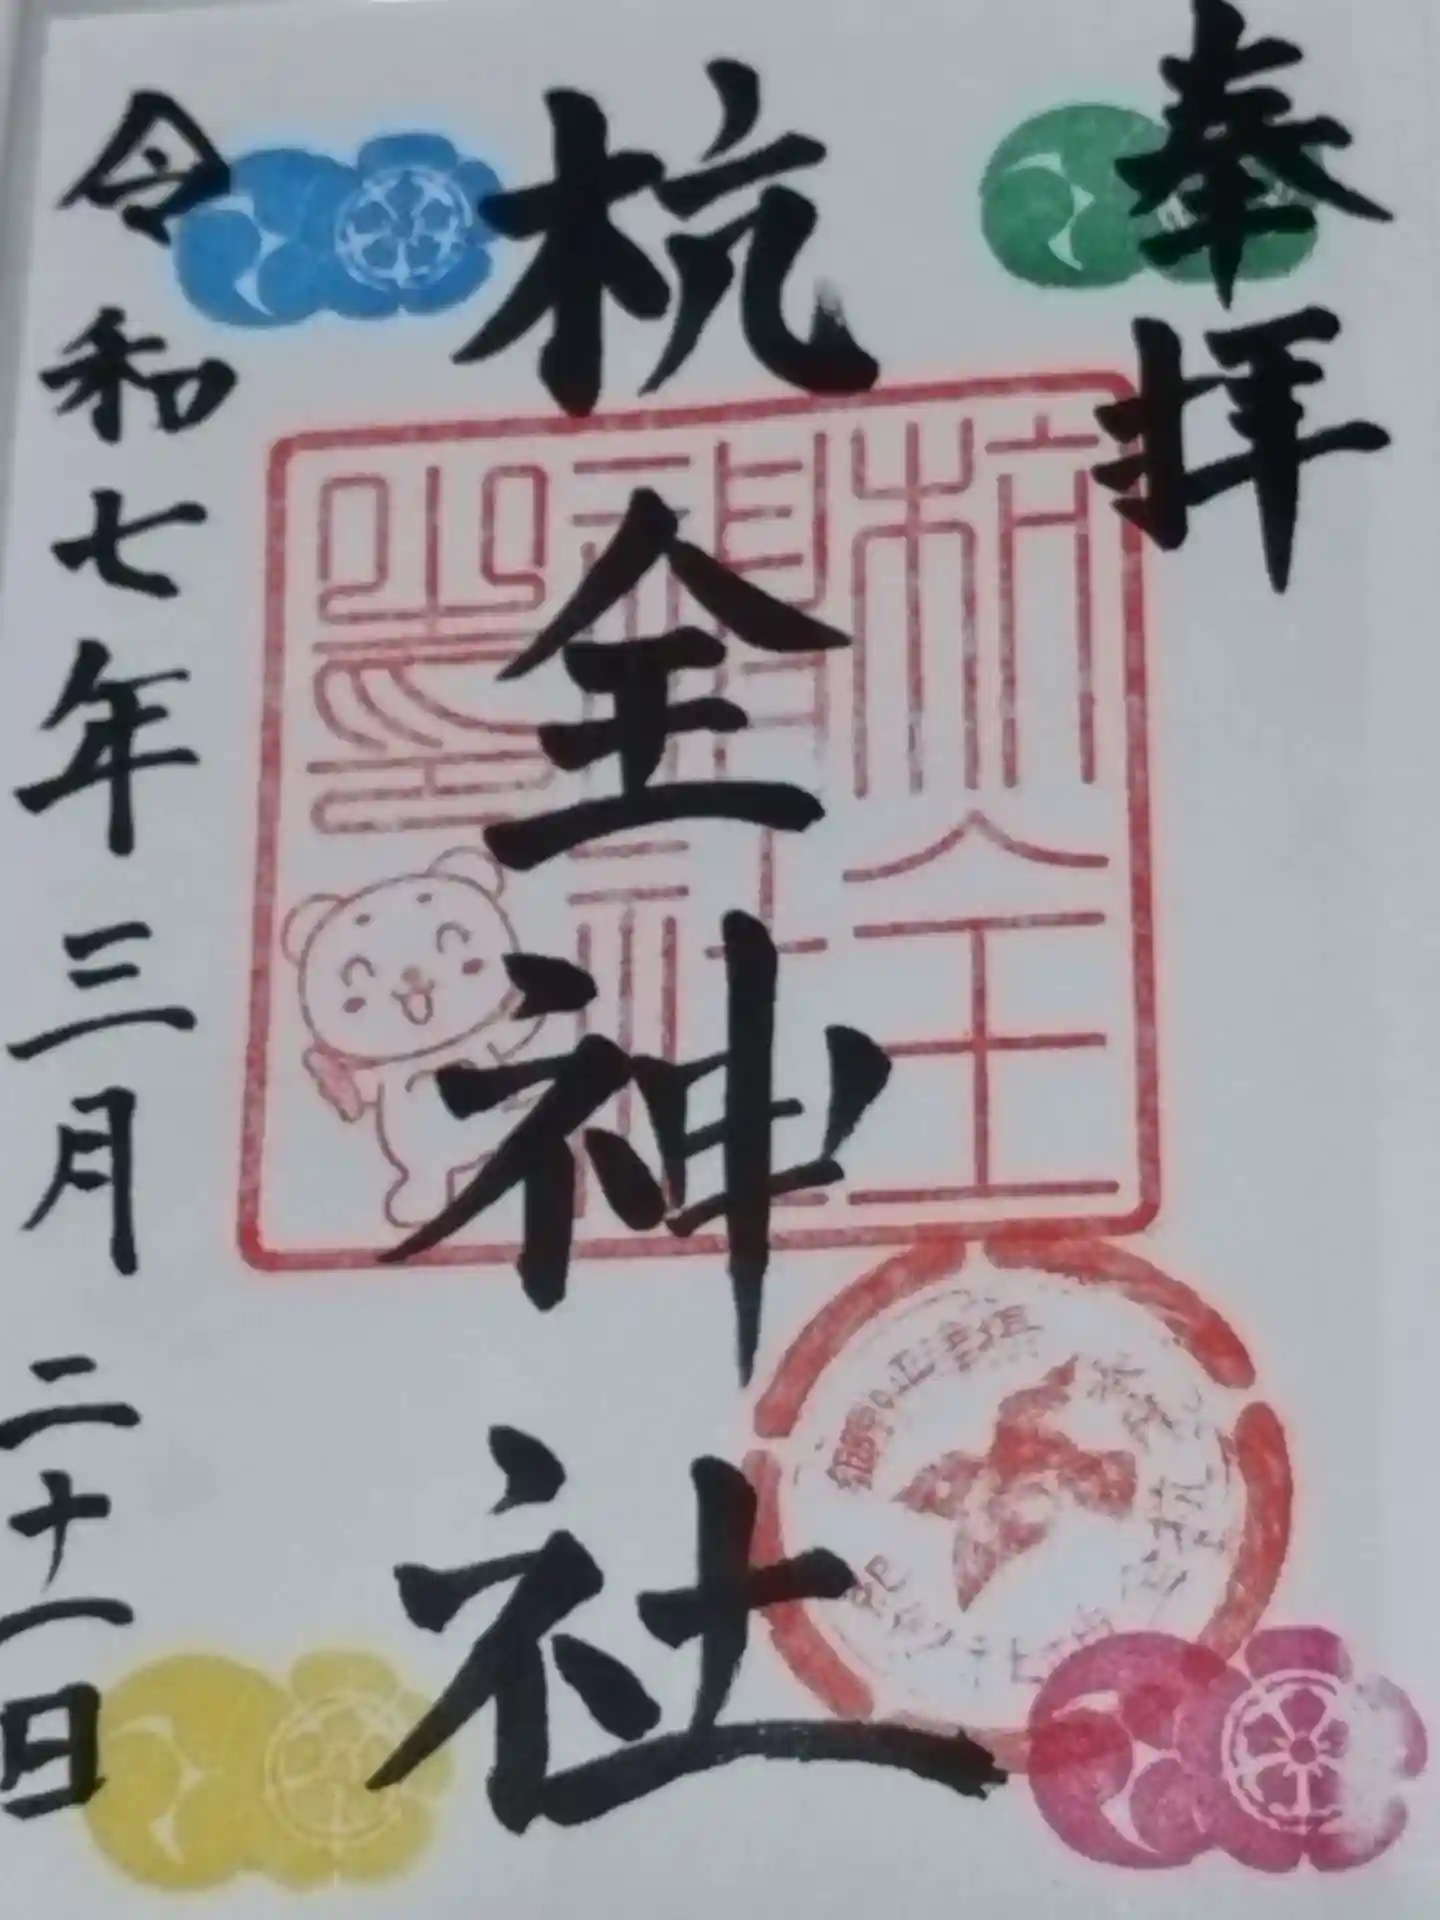 奉拝
杭全神社
令和七年三月二十一日
杭全
神社
之印